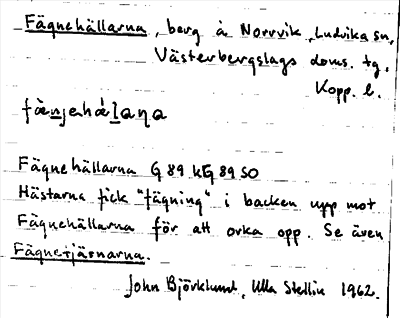 Fägnehällarna, berg å Norrvik, Ludvika sn,
Västerbergslags doms. tg,
Kopp. l.
fàṉjahä́ḻaṉa
Fägnehällarna G 89 kG 89 SO
Hästarna fick "fägning" i backen upp mot
Fägnehällarna för att orka opp. Se även
Fägnetjärnarna.
John Björklund, Ulla Stellin 1962.